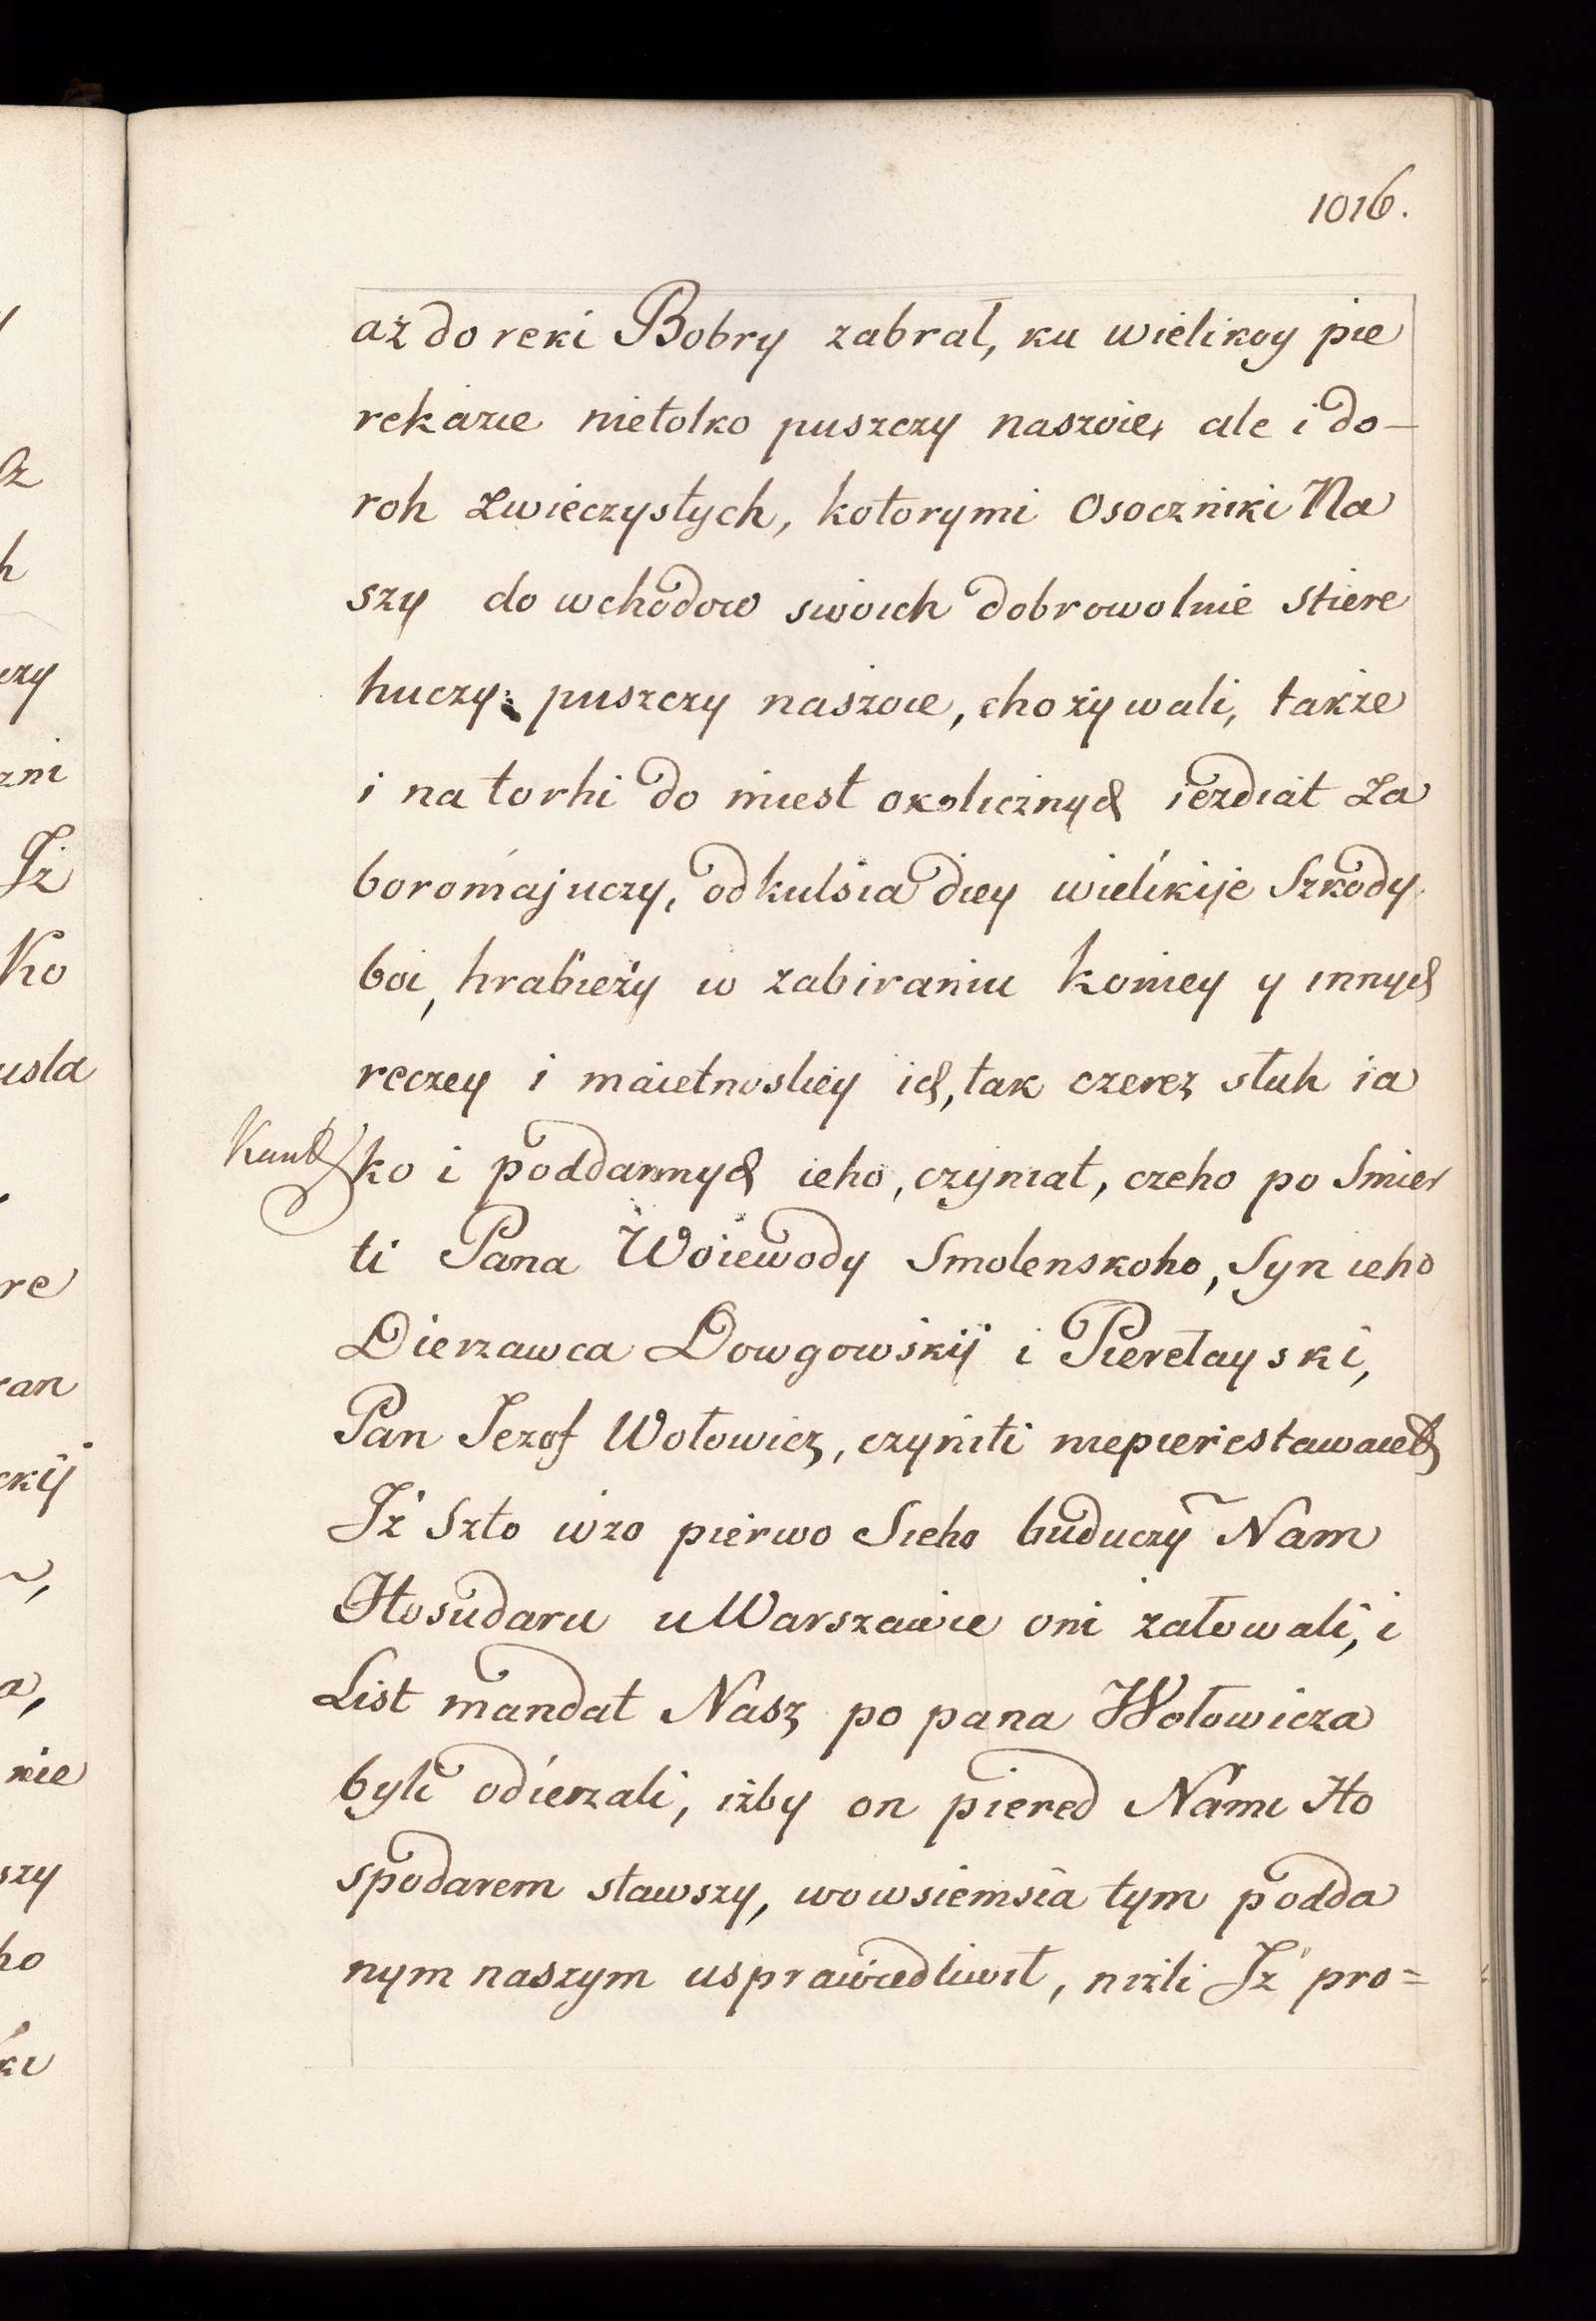 1016.
aż do reki Bobry zabrał, ku wielikoy pie
rekazie nietolko puszczy naszoie, ale i do-
roh Zwieczystych, kotorymi Osoczniki Na
szy do wchodow swoich dobrowolnie stiere
huczy puszczy naszoie, chożywali, także
i na torhi do miest okolicznych iezdiat Za
boromajuczy, odkulsia diey wielikije Szkody
boi, hrabieży w zabiraniu koniey y innych
reczey i maietnostiey ich, tak czerez słuh ia
ko i poddannych ieho, czyniat, czeho po Smier
ti Pana Woiewody Smolenskoho, Syn ieho
Dierzawca Dowgowskij i Pierełayski,
Pan Iezof Wołowicz, czyniti niepierestawaiet
Iż Szto wżo pierwo Sieho buduczy Nam
Hosudaru u Warszawie oni żałowali, i
List mandat Nasz po pana Wołowicza
byli odierzali, iżby on piered Nami Ho
spodarem stawszy, wowsiemsia tym podda
nym naszym usprawiedliwił, niżli Iż pro=